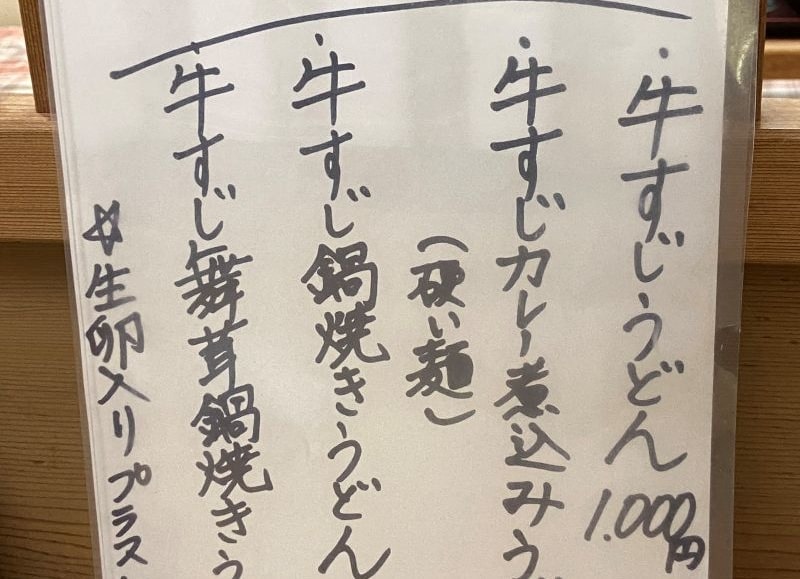 ・牛すじうどん 1.000円
・牛すじカレー煮込みう
（硬い麺）
・牛すじ鍋焼きうどん
・牛すじ舞茸鍋焼きう
☆生卵入りプラス